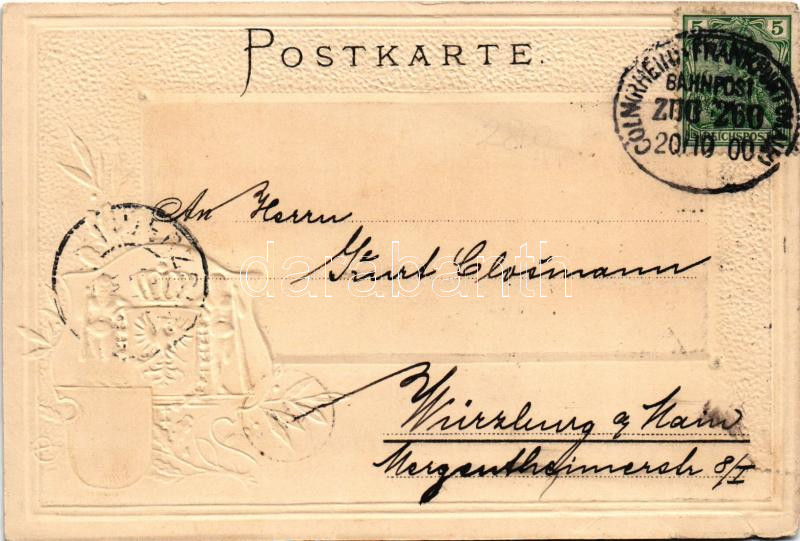 POSTKARTE.
5 5
REICHSPOST
CÖLN (RHEIN) FRANKFURT (MAIN)
BAHNPOST
ZUG 260
20/10 00
An Herrn
Kurt Closmann
darabanth
Würzburg a/Main
Mergentheimerstr 8/I